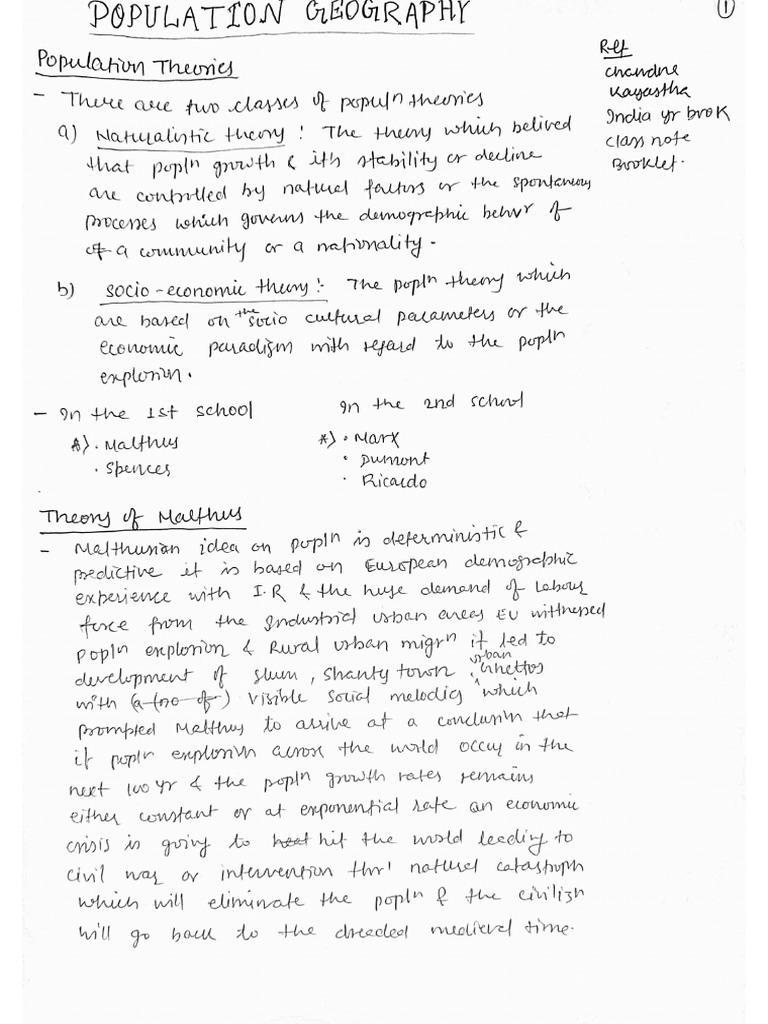 POPULATION GEOGRAPHY
1
Ref
Chandne
Kayastha
India yr brok
Class note
Booklet.
Population Theories
- There are two classes of populn theories
a) Naturalistic theory : The theory which belived
that popln growth & its stability or decline
are controlled by natural factors or the spontaneous
processes which governs the demographic behvr of
of a community or a nationality.
b) Socio-economic theory :- The popln theory which
are based on the socio cultural parameters or the
economic paradigm with regard to the popln
explosion.
- In the 1st school
A) . Malthus
. Spences
In the 2nd school
A) . Marx
. Dumont
. Ricardo
Theory of Malthus
- Malthusian idea on popln is deterministic &
predictive it is based on European demographic
experience with I.R & the huge demand of labour
force from the Industrial urban areas EU witnessed
popln explosion & Rural urban migrn it led to
development of slum, shanty town, urban Ghettos
with (a (no of) visible social melodies which
prompted Malthus to arrive at a conclusion that
if popln explosion across the world occur in the
next 100 yr & the popln growth rates remains
either constant or at exponential rate an economic
crisis is going to heat hit the world leading to
civil war or intervention thr' natural catastroph
which will eliminate the popln & the civilizn
will go back to the dreaded medieval time.